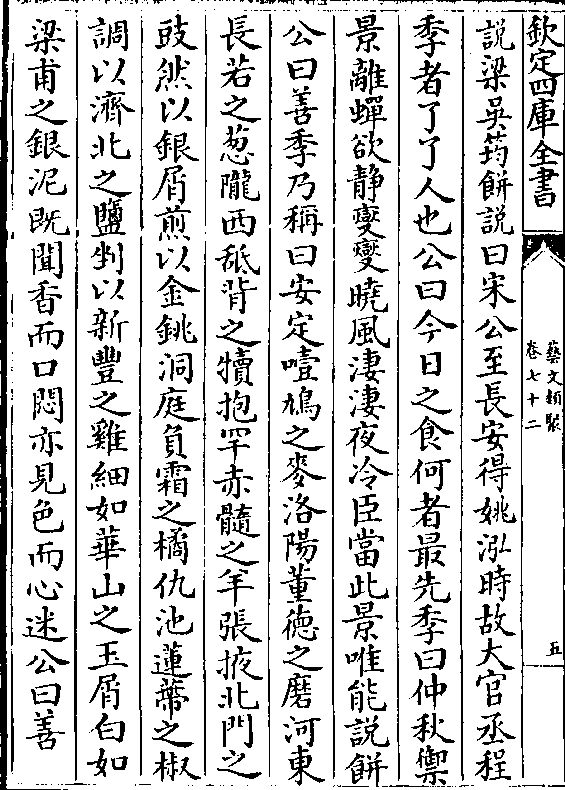 欽定四庫全書
藝文類聚
卷七十二
五
說梁吳筠餅說曰宋公至長安得姚泓時故大官丞程
季者了了人也公曰今日之食何者最先季曰仲秋禦
景離蟬欲静燮燮曉風淒淒夜冷臣當此景唯能説餅
公曰善季乃稱曰安定噎鳩之麥洛陽董德之磨河東
長若之葱隴西舐背之犢抱罕赤髓之羊張掖北門之
豉然以銀屑煎以金銚洞庭負霜之橘仇池蓮蔕之椒
調以濟北之鹽剉以新豐之雞細如華山之玉屑白如
梁甫之銀泥既聞香而口悶亦見色而心迷公曰善